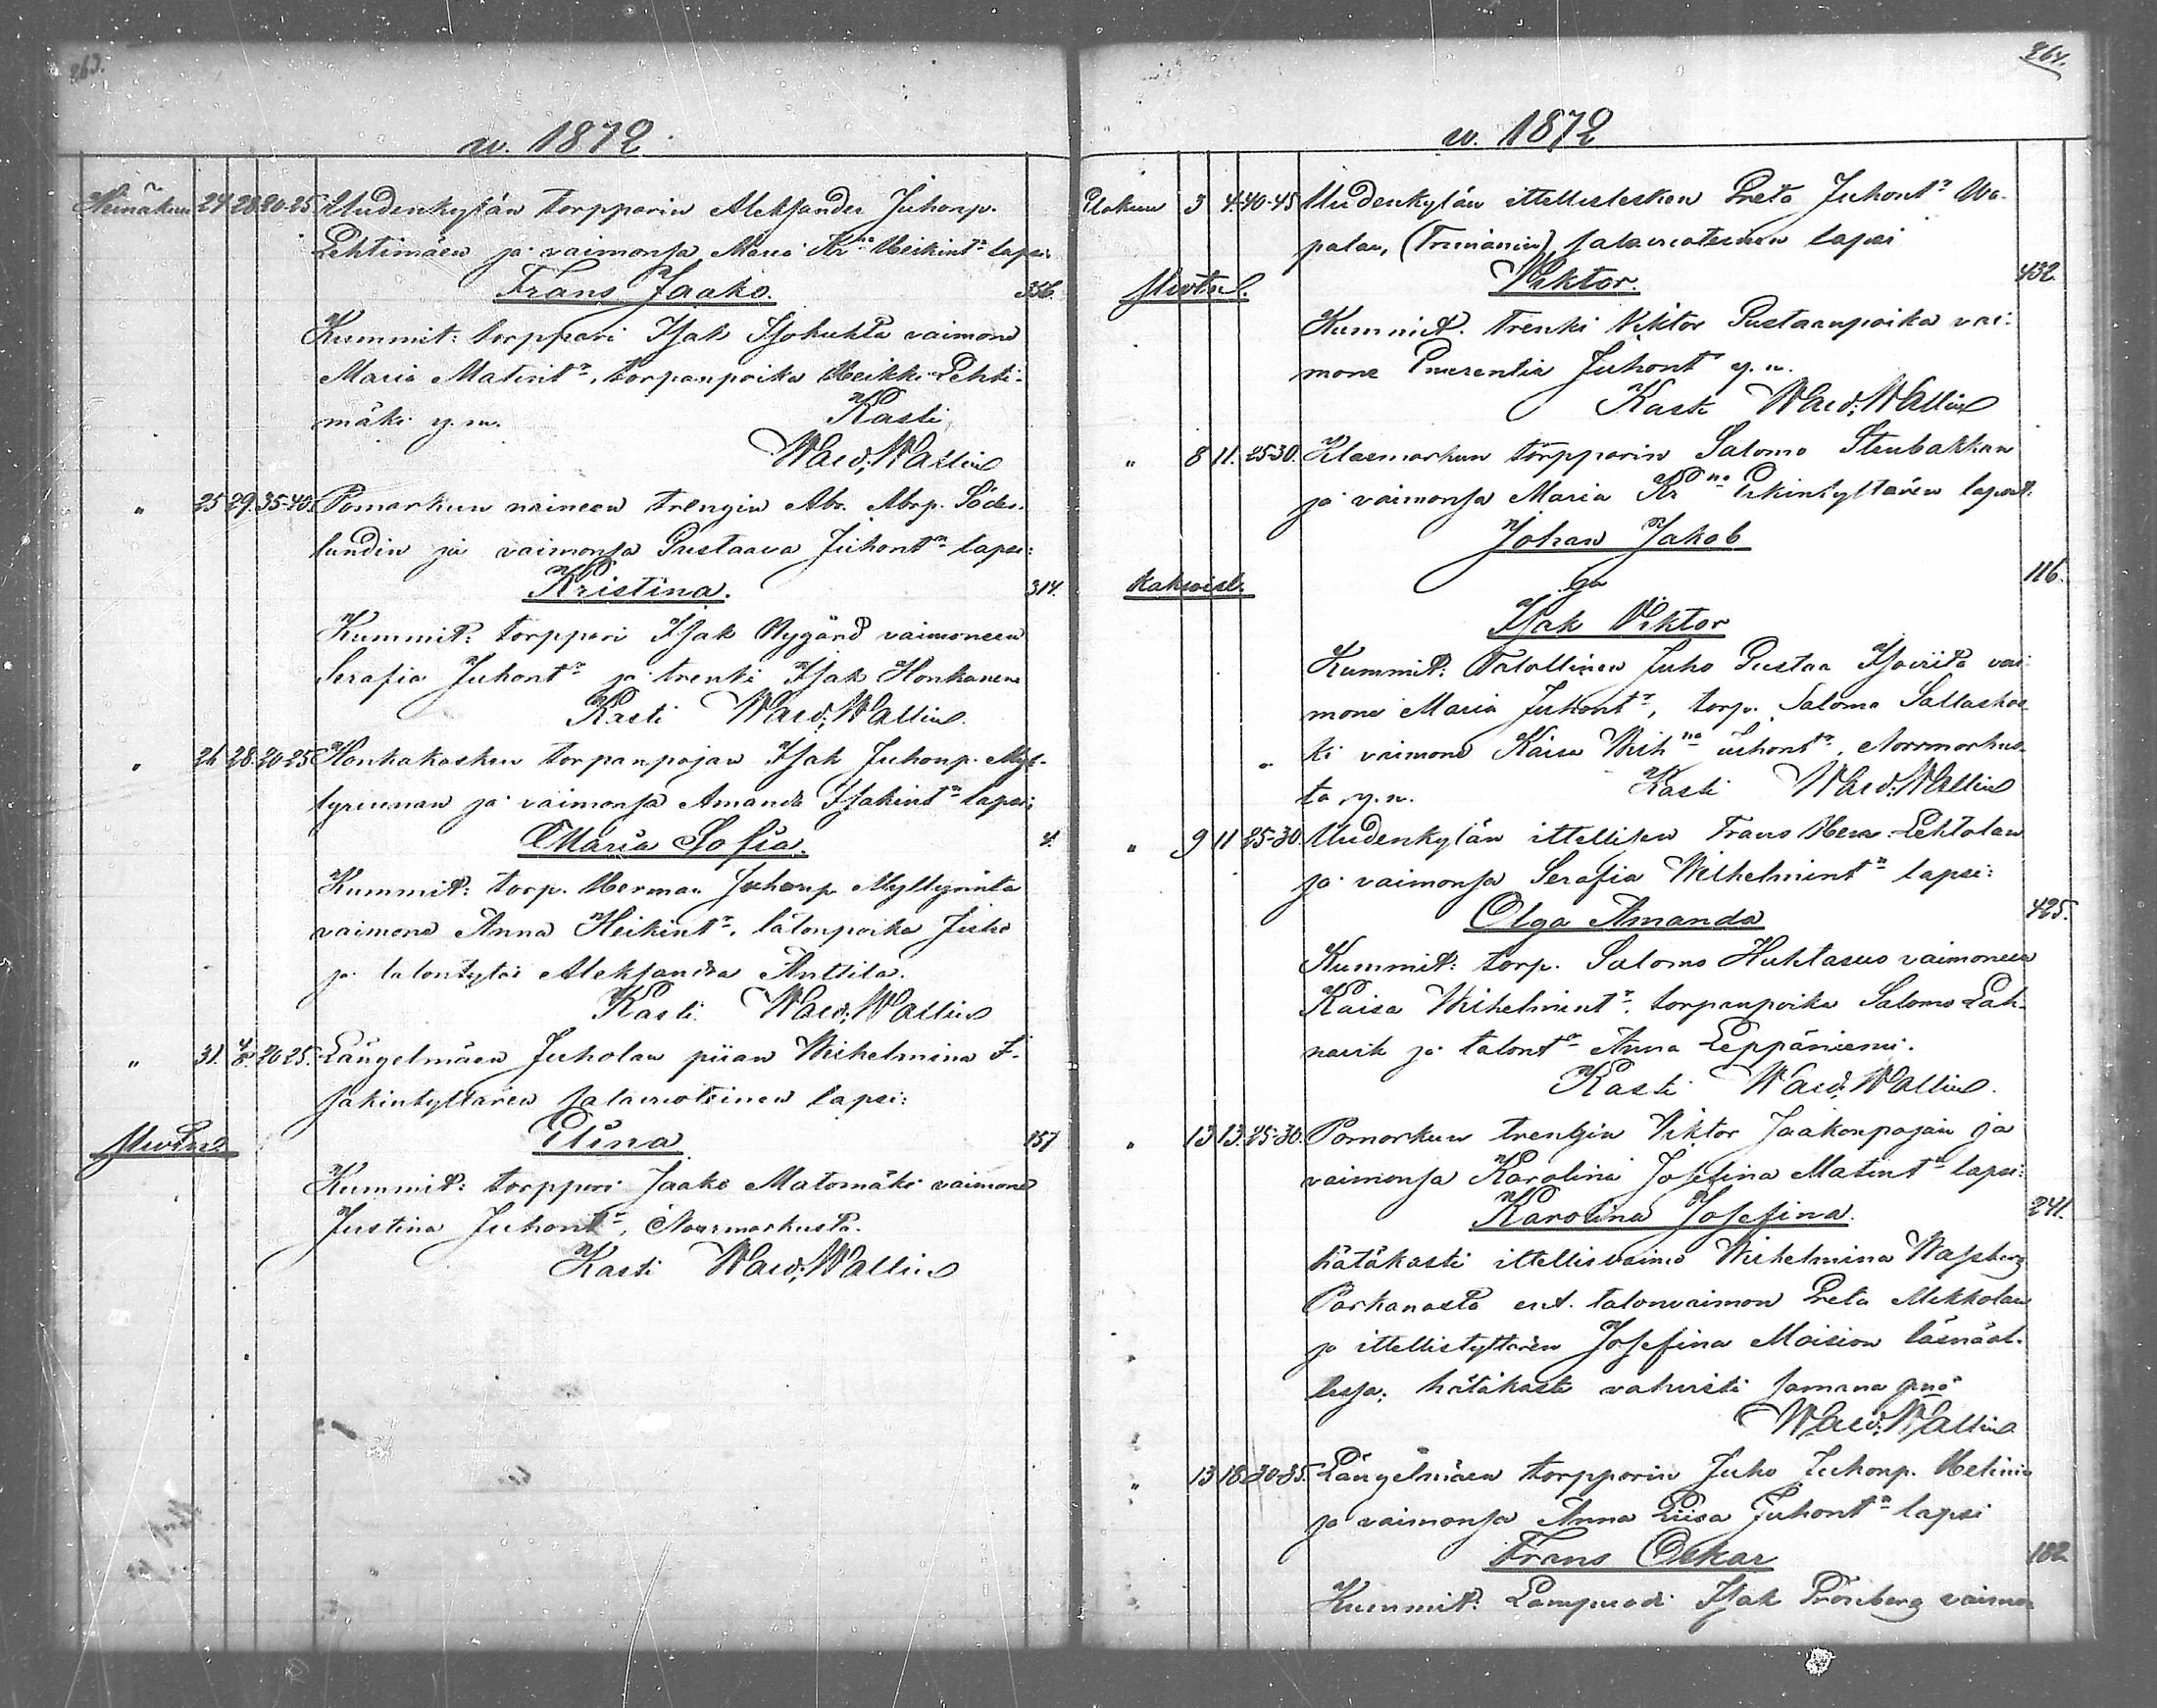 263.
w. 1872
Heinäkuu 24 28. 20-25 Uudenkylän torpparin Aleksander Juhonp.
Lehtimäen ja vaimonsa Maria Kr:na Heikint:n lapsi:
Frans Jaako. 356.
Kummit: torppari Isak Isokuhta vaimone
Maria Matint:r, torpanpoika Heikki Lehti-
mäki y.m. Kasti
Wald. Wallin
" 25 29. 35-40. Pomarkun naineen trengin Abr. Abrp. Söder-
lundin ja vaimonsa Gustaava Juhont:n lapsi:
Kristina. 314.
Kummit: torppari Isak Nygård vaimoneen
Serafia Juhont:r ja trenki Isak Honkanen
Kasti Wald. Wallin
" 26 28. 20-25 Honkakosken torpanpojan Isak Juhonp. Myl-
lyrinnan ja vaimonsa Amanda Isakint:n lapsi:
Maria Sofia. 4.
Kummit: torp. Herman Juhonp. Myllyrinta
vaimone Anna Heikint:r, talonpoika Juho
ja talontytär Aleksandra Anttila.
Kasti Wald. Wallin
" 31. 4/8. 20 25. Längelmäen Juholan piian Wilhelmina I-
sakintyttären salavuoteinen lapsi:
Elina 157
Kummit: torppari Jaako Matomäki vaimone
Justina Juhont:r, Noormarkusta.
Kasti Wald. Wallin
264.
w. 1872
Elokuu 3 4. 40-45 Uudenkylän ittellislesken Greta Juhont:n Wa-
palan, salavuoteinen lapsi
Wiktor. 432.
Kummit. trenki Viktor Gustaanpoika vai-
mone Juhont:r y.m.
Kasti Wald. Wallin
" 8 11. 25-30. Klasmarkun torpparin Salomo Stenbakkan
ja vaimonsa Maria Kr:na Erkintyttären lapset.
Johan Jakob
ja 116.
Kaksoiset.
Isak Viktor
Kummit: Talollinen Juho Gustaa vai-
mone Maria Juhont:r, torp. Salomo Sallaskos-
ki vaimone Kaisa Wilh:na Juhont:r, Norrmarkus-
ta, y.m. Kasti Wald. Wallin
" 9 11 25-30. Uudenkylän ittellisen Frans Herm. Lehtolan
ja vaimonsa Serafia Wilhelmint:n lapsi:
Olga Amanda 425.
Kummit: torp. Salomo Huhtasuo vaimoneen
Kaisa Wilhelmint:r, torpanpoika Salomo Lah-
navik ja talont:r Anna Leppäniemi.
Kasti Wald. Wallin.
" 13 13. 25-30. Pomarkun trengin Viktor Jaakonpojan ja
vaimonsa Karolina Josefina Matint:n lapsi:
Karolina Josefina. 241.
hätäkasti ittellisvaimo Wilhelmina
Parkanosta ent. talonvaimon Greta Mikkolan
ja ittellistyttären Josefina Moision läsnäol-
lessa; hätäkaste vahvisti samana pnä
Wald. Wallin
" 13 18. 30-35. Längelmäen torpparin Juho Juhonp. Helinin
ja vaimonsa Anna Liisa Juhont:n lapsi
Frans Oskar 102
Kummit: Lampuodi Isak Grönberg vaimo-